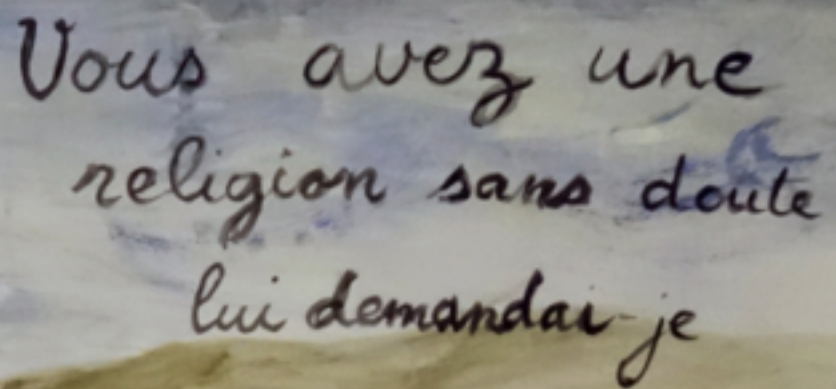 Vous avez une
religion sans doute
lui demandai-je